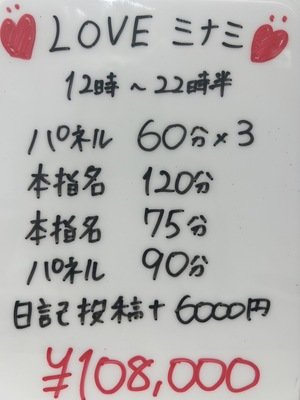 LOVE ミナミ
12時 ~ 22時半
パネル 60分×3
本指名 120分
本指名 75分
パネル 90分
日記投稿+ 6000円
¥108,000